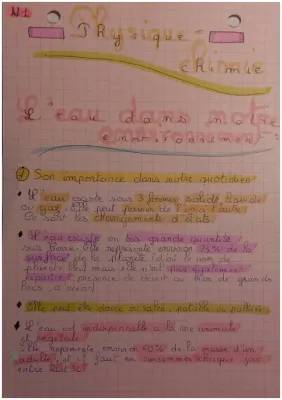 N°1
Physique -
chimie
L'eau dans notre
environnement
① Son importance dans notre quotidien
• L'eau existe sous 3 formes solide, liquide
ou gaz. Elle peut passer de l'une à l'autre
Ce sont les changements d'états.
• L'eau existe en très grande quantité
sur Terre. Elle représente environ 75% de la
surface de la planète (d'où le nom de
planète bleue) mais elle n'est pas également
répartie : présence de désert au lieu de grands
lacs, océan
• Elle peut être douce ou salée, potable ou polluée
• L'eau est indispensable à la vie animale
et végétale
Elle représente environ 60% de la masse d'un
adulte et il faut en consommer chaque jour
entre